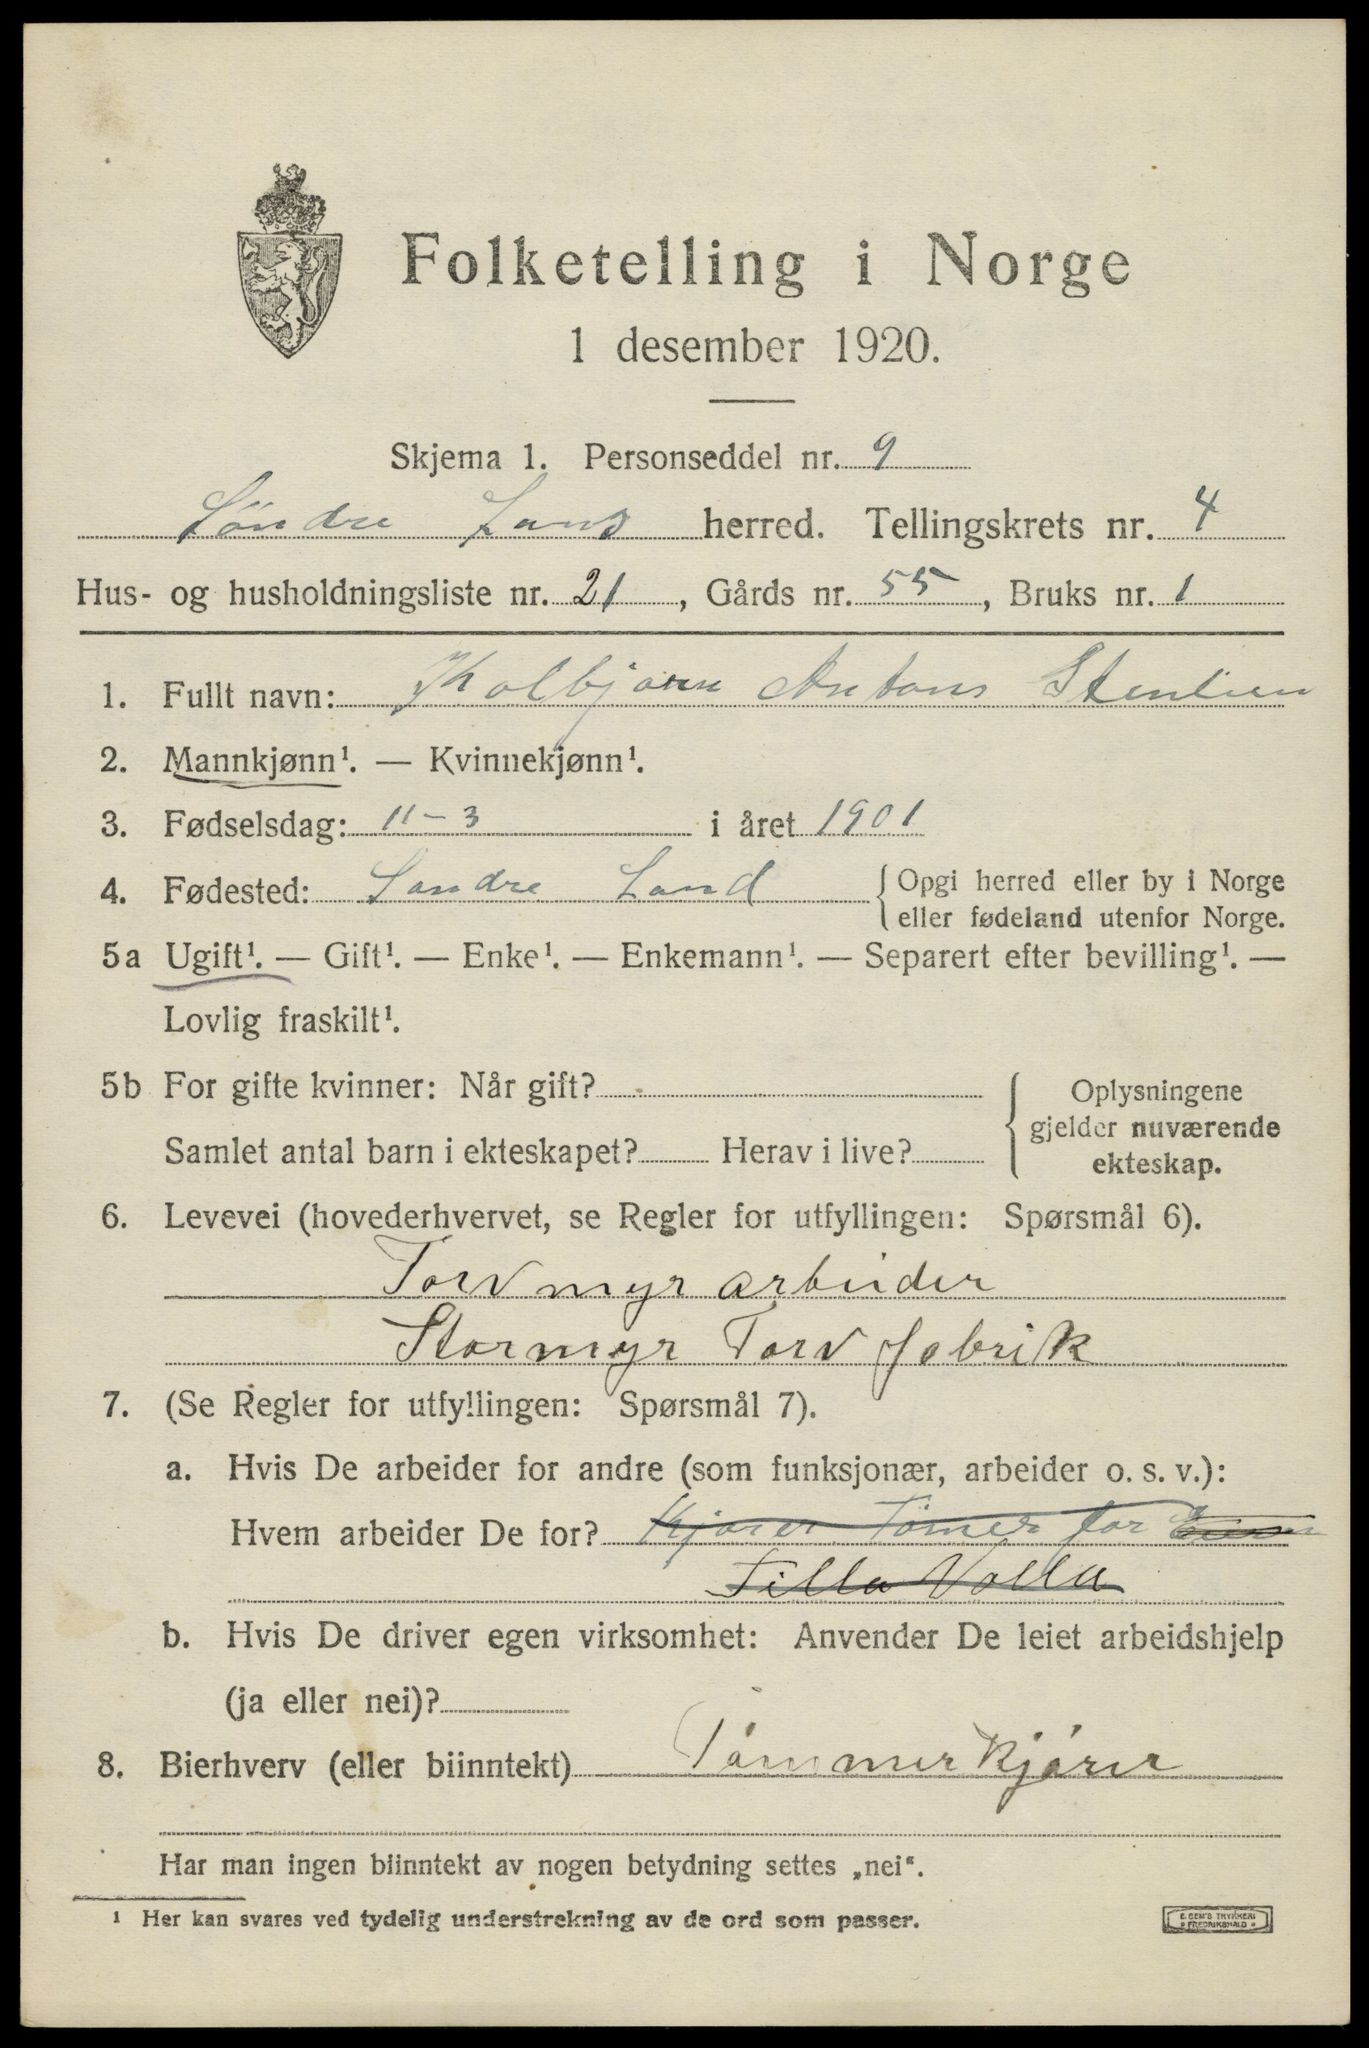 Folketelling i Norge
1 desember 1920.
Skjema 1. Personseddel nr. 9
Søndre Land herred. Tellingskrets nr. 4
Hus- og husholdningsliste nr. 21, Gårds nr. 55, Bruks nr. 1
1. Fullt navn: Kolbjørn Antons Stenlien
2. Mannkjønn¹. — Kvinnekjønn¹.
3. Fødselsdag: 11-3 i året 1901
4. Fødested: Søndre Land { Opgi herred eller by i Norge
eller fødeland utenfor Norge.
5a Ugift¹. — Gift¹. — Enke¹. — Enkemann¹. — Separert efter bevilling¹. —
Lovlig fraskilt¹.
5b For gifte kvinner: Når gift?
Samlet antal barn i ekteskapet? Herav i live?
Oplysningene
gjelder nuværende
ekteskap.
6. Levevei (hovederhvervet, se Regler for utfyllingen: Spørsmål 6).
Torvmyr arbeider
Stormyr Torv fabrik
7. (Se Regler for utfyllingen: Spørsmål 7).
a. Hvis De arbeider for andre (som funksjonær, arbeider o. s. v.):
Hvem arbeider De for? Kjører Tømer for
Tilla Volla
b. Hvis De driver egen virksomhet: Anvender De leiet arbeidshjelp
(ja eller nei)?
8. Bierhverv (eller biinntekt) Tømmerkjører
Har man ingen biinntekt av nogen betydning settes „nei“.
¹ Her kan svares ved tydelig understrekning av de ord som passer.
E. SEM'S TRYKKERI
FREDRIKSHALD